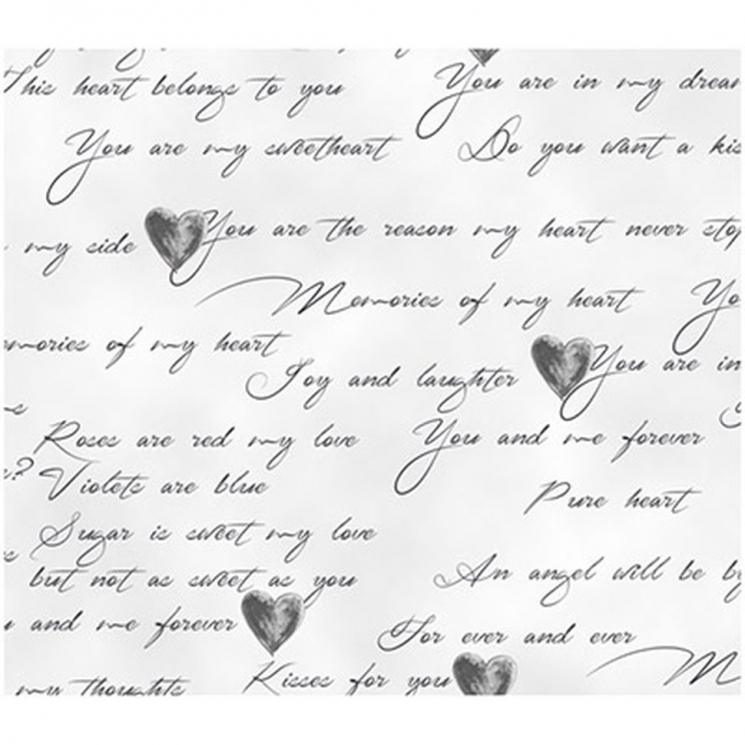 This heart belongs to you
You are in my drea
You are my sweetheart
Do you want a kis
my side
You are the reason my heart never stop
Memories of my heart
Yo
mories of my heart
Joy and laughter
You are in
Roses are red my love
You and me forever
Violets are blue
Pure heart
Sugar is sweet my love
but not as sweet as you
An angel will be by
and me forever
For ever and ever
my thoughts
Kisses for you
M